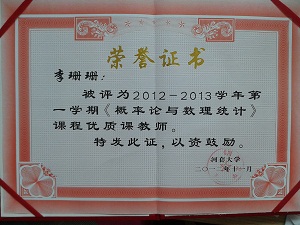 荣誉证书
李珊珊：
被评为2012－2013学年第
一学期《概率论与数理统计》
课程优质课教师。
特发此证，以资鼓励。
河套大学
二〇一二年十一月